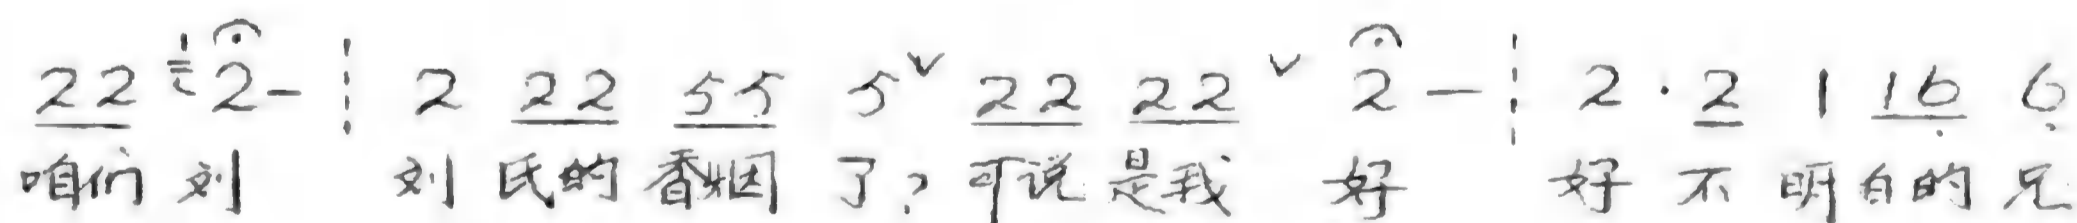 22 2- ┆ 2 22 55 5ˇ 22 22 ˇ 2 - ┆ 2 · 2 1 16 6
咱们 刘 刘 氏的 香烟 了? 可说 是我 好 好 不 明白的 兄